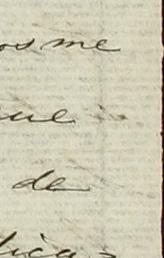 os me
ue
de
lica